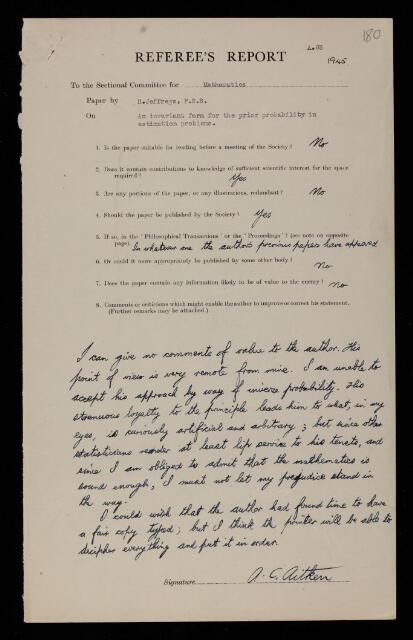 180
A.93
1945
REFEREE'S REPORT
To the Sectional Committee for Mathematics
Paper by H.Jeffreys, F.R.S.
On An invariant form for the prior probability in
estimation problems.
1. Is the paper suitable for reading before a meeting of the Society? No
2. Does it contain contributions to knowledge of sufficient scientific interest for the space
required? Yes
3. Are any portions of the paper, or any illustrations, redundant? No
4. Should the paper be published by the Society? Yes
5. If so, in the 'Philosophical Transactions' or the 'Proceedings'? (see note on opposite
page). In whatever one the author's previous papers have appeared
6. Or could it more appropriately be published by some other body? No
7. Does the paper contain any information likely to be of value to the enemy? No
8. Comments or criticisms which might enable the author to improve or correct his statement.
(Further remarks may be attached.)
I can give no comments of value to the author. His
point of view is very remote from mine. I am unable to
accept his approach by way of inverse probability. His
strenuous loyalty to the principle leads him to what, in my
eyes, is curiously artificial and arbitrary; but since other
statisticians render at least lip service to his tenets, and
since I am obliged to admit that the mathematics is
sound enough, I must not let my prejudice stand in
the way.
I could wish that the author had found time to have
a fair copy typed; but I think the printer will be able to
decipher everything and put it in order.
Signature A. C. Aitken